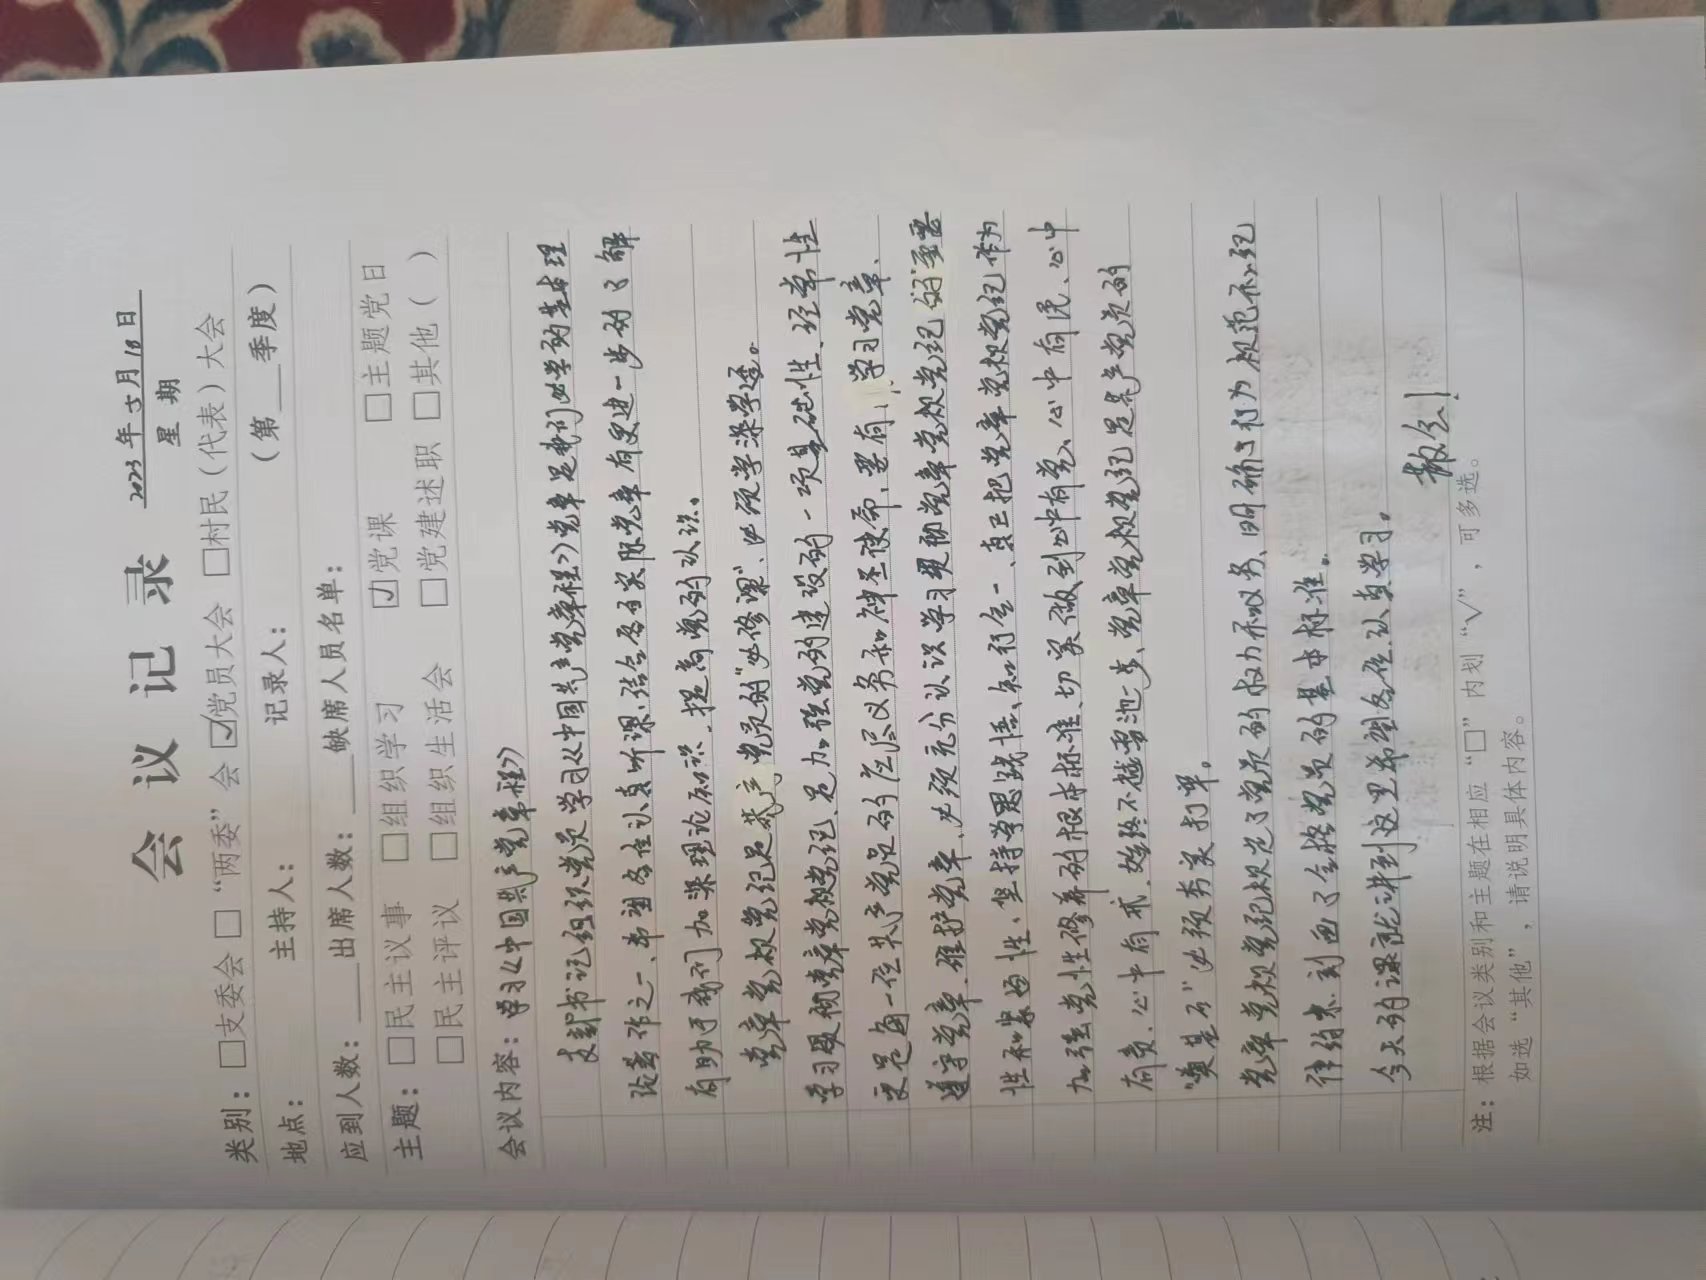 会议记录
2023年5月18日
星期
类别：□支委会 □“两委”会 ☑党员大会 □村民（代表）大会
地点： 主持人： 记录人： （第___季度）
应到人数：___出席人数：___缺席人员名单：
主题：□民主议事 □组织学习 ☑党课 □主题党日
□民主评议 □组织生活会 □党建述职 □其他（ ）
会议内容：学习《中国共产党章程》
支部书记组织党员学习《中国共产党章程》党章是我们必学的基础理
论著作之一、希望各位认真听课，结合自实际党章有更进一步的了解
有助于我们加深理论知识，提高党的认识。
党章党规党纪是共产党员的“必修课”、必须学深学透。
学习贯彻党章党规党纪，是加强党的建设的一项基础性、经常性
更是每一位共产党员的应尽义务和神圣使命，要有，学习党章、
遵守党章、维护党章、必须充分认识学习贯彻党章党规党纪的重要
性和紧迫性，坚持学思践悟、知行合一、真正把党章党规党纪作为
加强党性修养的根本标准、切实做到心中有党、心中有民、心中
有责、心中有戒，始终不越雷池一步、党章党规党纪是共产党员的
“奠基石”必须夯实打牢。
党章党规党纪规范了党员的权力和义务、明确了行为规范和纪
律约束、刻画了合格党员的基本标准。
今天的课就讲到这里希望各位认真学习。
散会！
注：根据会议类别和主题在相应“□”内划“√”，可多选。
如选“其他”，请说明具体内容。